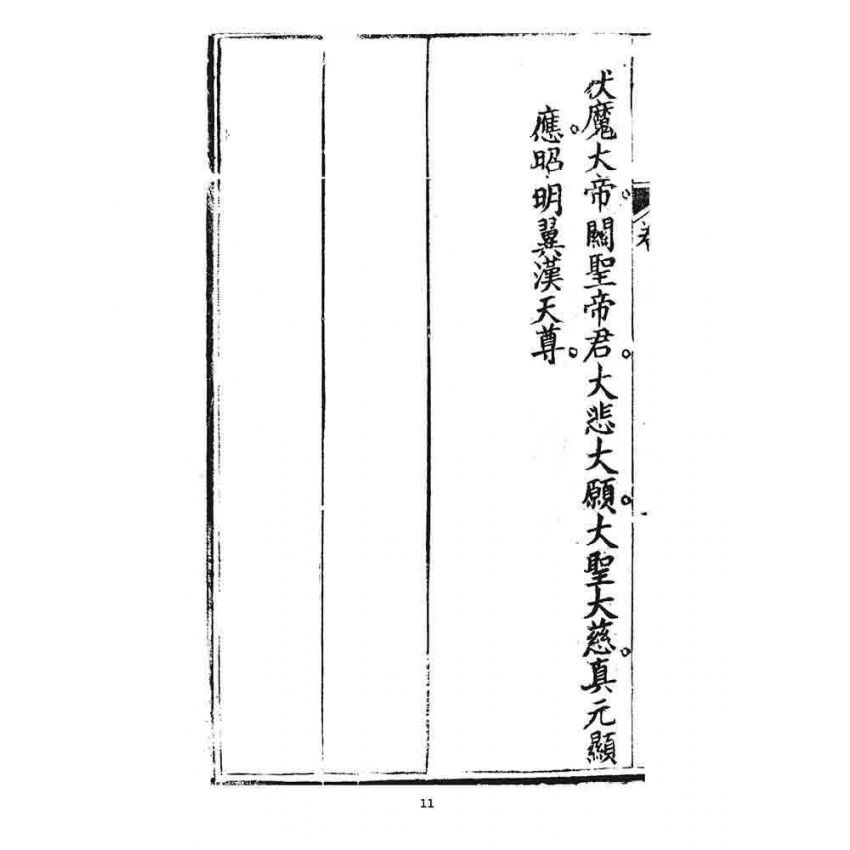 伏魔大帝。關聖帝君。大悲大願。大聖大慈。真元顯
應。昭明翼漢天尊。
11